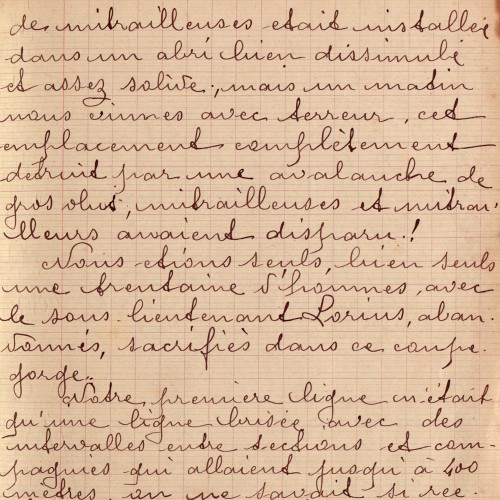 de mitrailleuses etait installée
dans un abri bien dissimulé
et assez solide, mais un matin
nous vîmes avec terreur, cet
emplacement complètement
détruit par une avalanche de
gros obus, mitrailleuses et mitrai-
lleurs avaient disparu.!
Nous etions seuls, bien seuls
une trentaine d'hommes, avec
le sous-lieutenant Lorius, aban-
donnés, sacrifiès dans ce coupe-
gorge..
Notre première ligne n'était
qu'une ligne brisée avec des
intervalles entre sections et com-
pagnies qui allaient jusqu'à 400
mètres, on ne savait si rée-